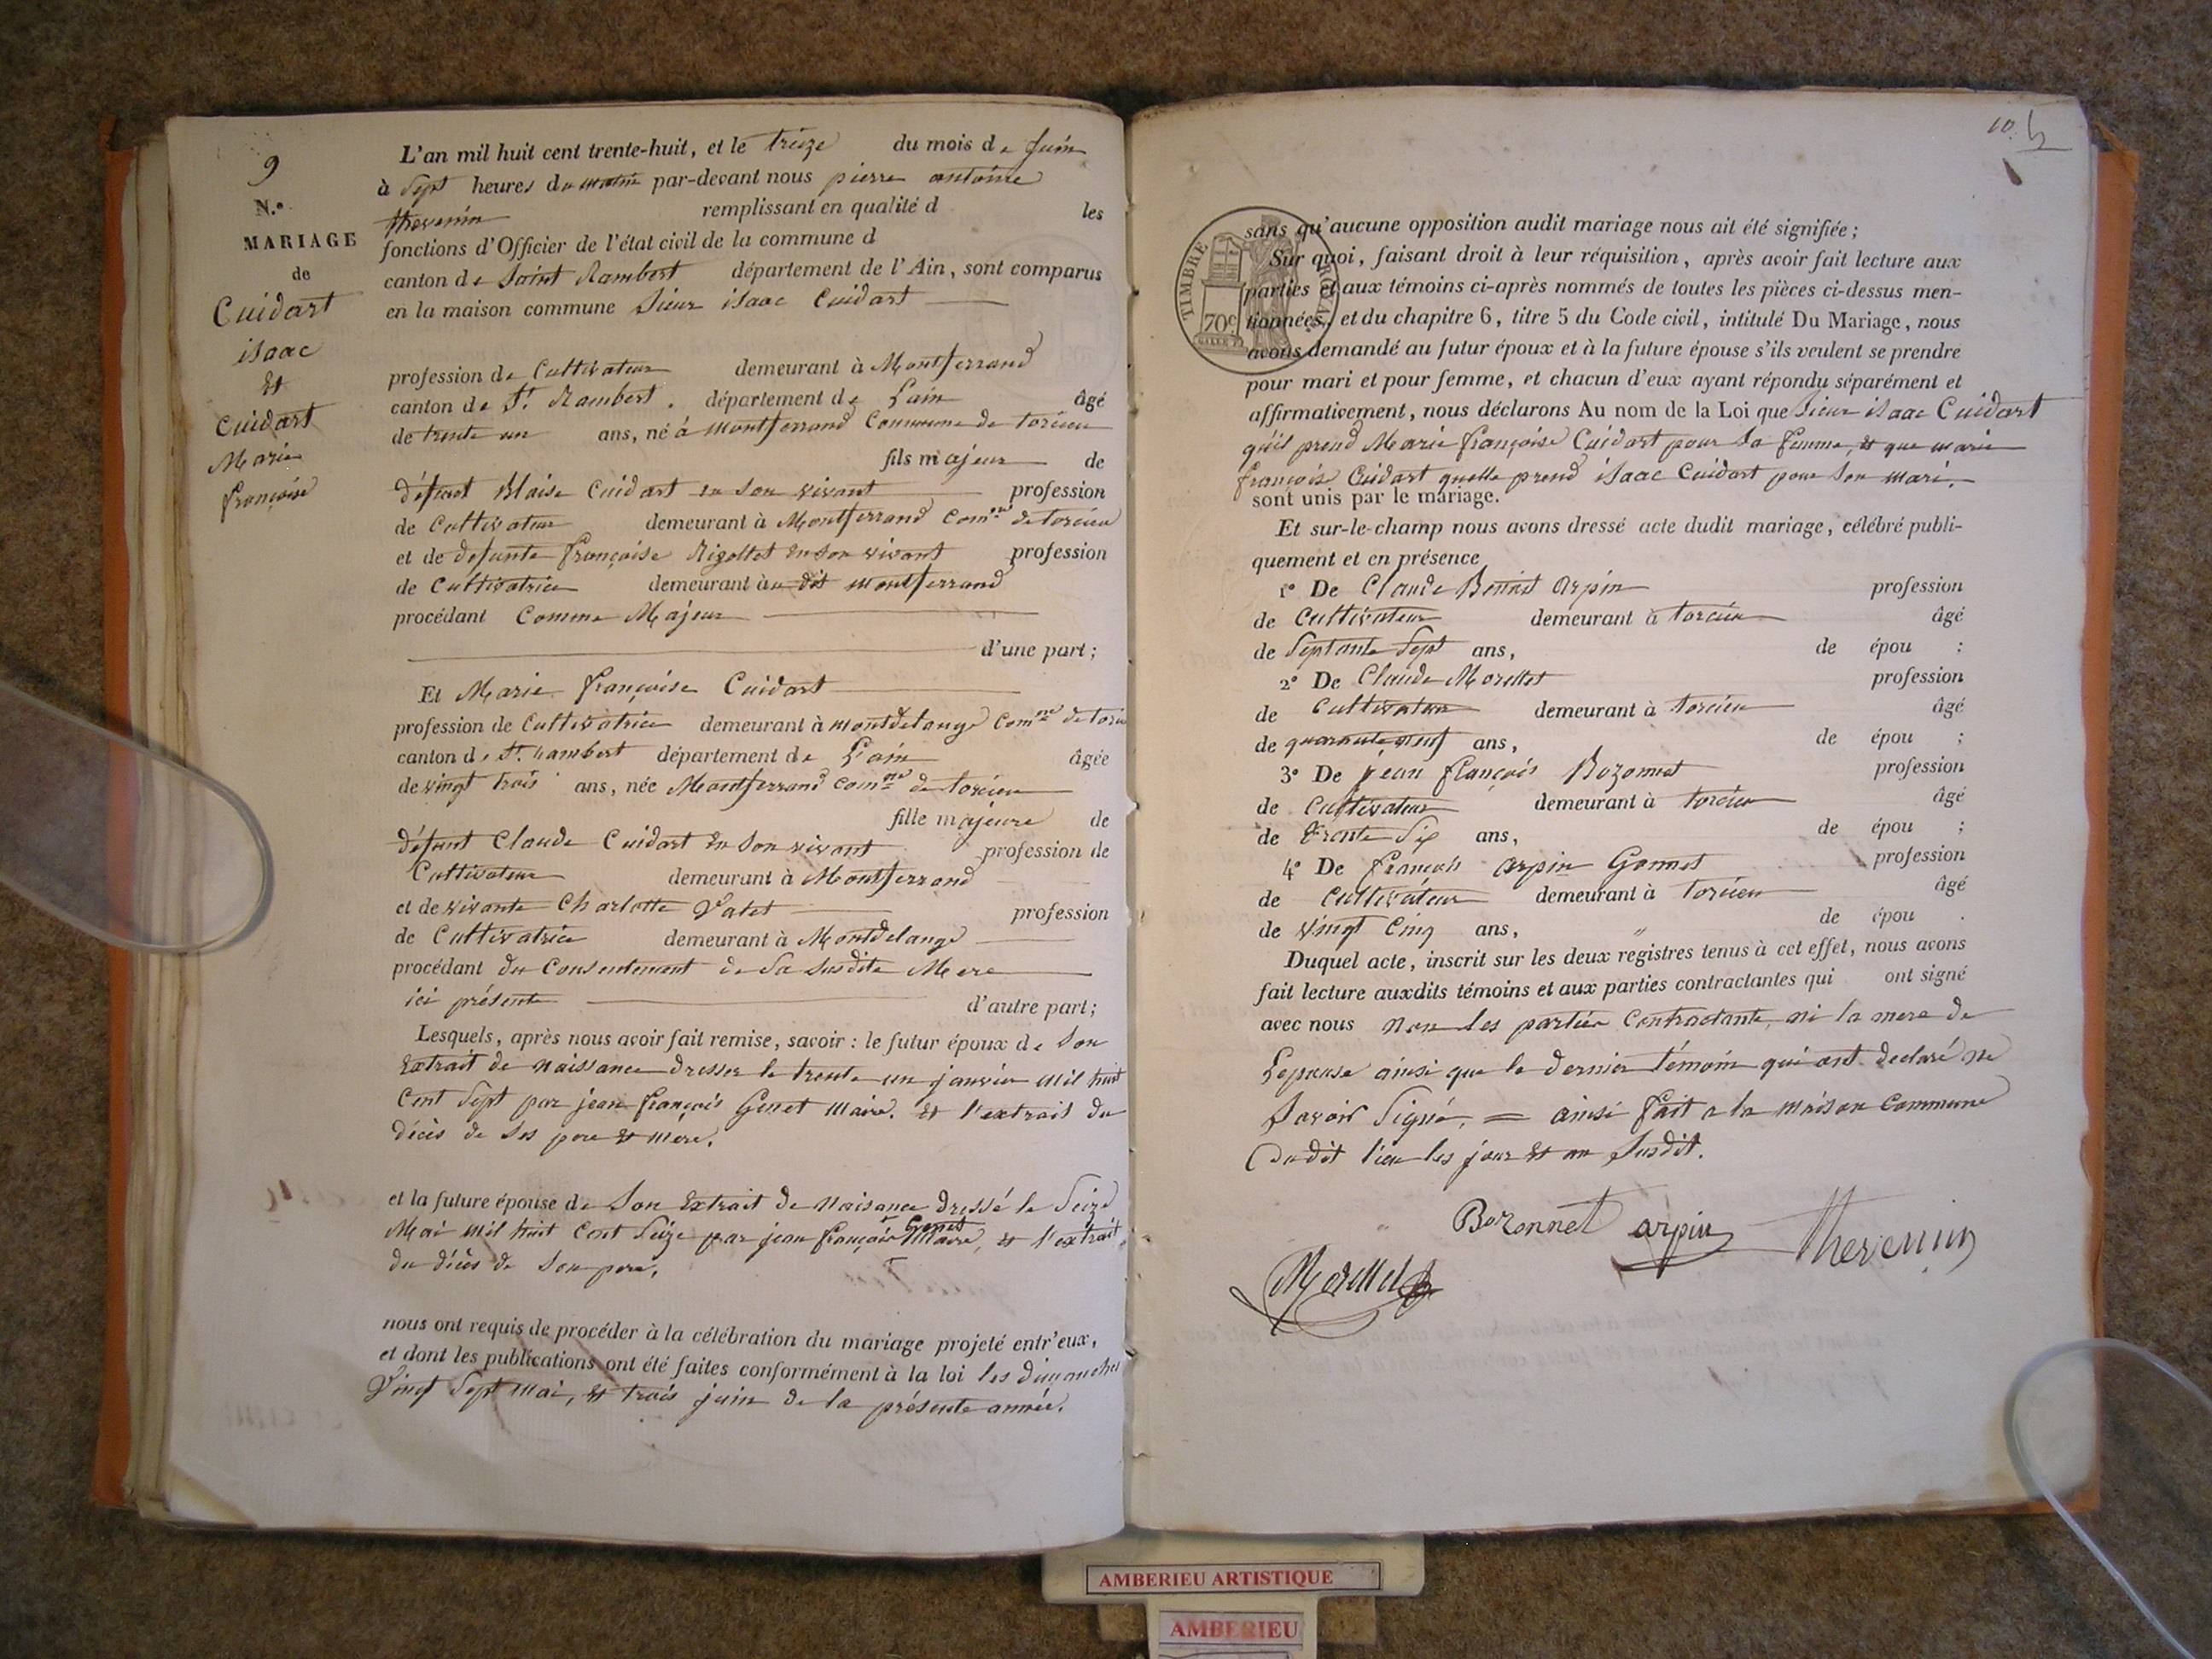 9
N.º
MARIAGE
de
Cuidart
isaac
Et
Cuidart
Marie
françoise
L'an mil huit cent trente-huit, et le treize du mois de Juin
à Sept heures du matin par-devant nous pierre antoine
thevenin remplissant en qualité d les
fonctions d'Officier de l'état civil de la commune d
canton de Saint Rambert département de l'Ain, sont comparus
en la maison commune Sieur isaac Cuidart
profession de Cultivateur demeurant à Montferrand
canton de St. Rambert. département de Lain âgé
de trente un ans, né à Montferrand Commune de torcieu
fils majeur de
défunt Blaise Cuidart en son vivant profession
de Cultivateur demeurant à Montferrand Comne de torcieu
et de defunte françoise Rigollet en son vivant profession
de Cultivatrice demeurant à u dit montferrand
procédant Comme Majeur
d'une part;
Et Marie françoise Cuidart
profession de Cultivatrice demeurant à montdelange Comne de torcieu
canton de St. rambert département de Lain âgée
de vingt trois ans, née Montferrand comne de torcieu
fille majeure de
défunt Claude Cuidart en son vivant profession de
Cultivateur demeurant à Montferrand
et de vivante Charlotte Valet profession
de Cultivatrice demeurant à Montdelange
procédant du Consentement de sa susdite Mere
ici présente d'autre part;
Lesquels, après nous avoir fait remise, savoir : le futur époux de Son
Extrait de Naissance dresser le trente un janvier mil huit
Cent Sept par jean françois Genet Maire. Et l'extrait du
décès de ses pere et mère.
et la future épouse de Son Extrait de Naisance dressé le Seize
Mai mil huit Cent Seize par jean françois Genet Maire, et l'extrait
du décès de Son pere,
nous ont requis de procéder à la célébration du mariage projeté entr'eux,
et dont les publications ont été faites conformément à la loi les dimanches
Vingt Sept Mai, et trois juin de la présente année.
10
TIMBRE ROYAL
70c
sans qu'aucune opposition audit mariage nous ait été signifiée;
Sur quoi, faisant droit à leur réquisition, après avoir fait lecture aux
parties et aux témoins ci-après nommés de toutes les pièces ci-dessus men-
tionnées, et du chapitre 6, titre 5 du Code civil, intitulé Du Mariage, nous
avons demandé au futur époux et à la future épouse s'ils veulent se prendre
pour mari et pour femme, et chacun d'eux ayant répondu séparément et
affirmativement, nous déclarons Au nom de la Loi que Sieur isaac Cuidart
qu'il prend Marie françoise Cuidart pour sa femme, et que marie
françois Cuidart quelle prend isaac Cuidart pour Son mari.
sont unis par le mariage.
Et sur-le-champ nous avons dressé acte dudit mariage, célébré publi-
quement et en présence
1º De Claude Benoit Arpin profession
de Cultivateur demeurant à torcieu âgé
de Septante Sept ans, de épou ;
2º De Claude Morellet profession
de Cultivateur demeurant à torcieu âgé
de quarante neuf ans, de épou ;
3º De jean françois Bozonnet profession
de Cultivateur demeurant à torcieu âgé
de trente Six ans, de épou ;
4º De françois arpin Gonnet profession
de Cultivateur demeurant à torcieu âgé
de Vingt Cinq ans, de épou .
Duquel acte, inscrit sur les deux registres tenus à cet effet, nous avons
fait lecture auxdits témoins et aux parties contractantes qui ont signé
avec nous non les partier Contractante, ni la mere de
Lepouse ainsi que le dernier témoin qui ont declaré ne
Savoir Signé, = ainsi fait a la maison Commune
dudit lieu les jour et an Susdit.
Bozonnet arpin thevenin
Morellet
AMBERIEU ARTISTIQUE
AMBERIEU